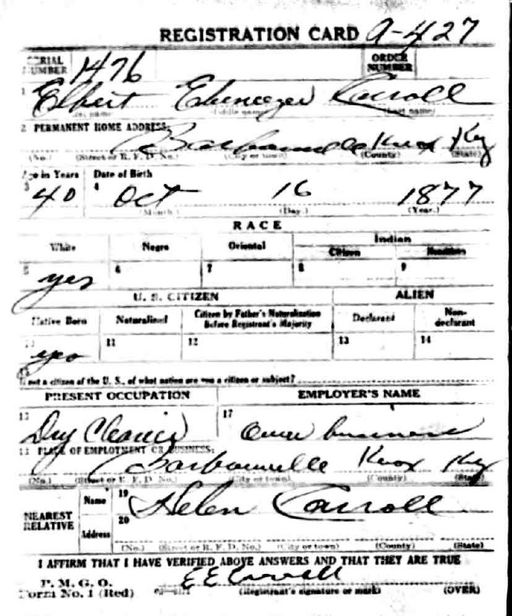 REGISTRATION CARD A-427
SERIAL NUMBER 1476 ORDER NUMBER
1 Elbert Ebenezer Carroll
(First name) (Middle name) (Last name)
2 PERMANENT HOME ADDRESS:
Barbourville Knox Ky
(No.) (Street or R. F. D. No.) (City or town) (County) (State)
Age in Years Date of Birth
3 40 4 Oct 16 1877
(Month.) (Day.) (Year.)
RACE
White Negro Oriental Indian
Citizen
5 yes 6 7 8 9
U. S. CITIZEN ALIEN
Native Born Naturalized Citizen by Father's Naturalization Before Registrant's Majority Declarant Non-declarant
10 yes 11 12 13 14
15 If not a citizen of the U. S., of what nation are you a citizen or subject?
PRESENT OCCUPATION EMPLOYER'S NAME
16 Dry Cleaner 17 Own business
18 PLACE OF EMPLOYMENT OR BUSINESS:
Barbourville Knox Ky
(No.) (Street or R. F. D. No.) (City or town) (County) (State)
NEAREST RELATIVE Name 19 Helen Carroll
Address 20
(No.) (Street or R. F. D. No.) (City or town) (County) (State)
I AFFIRM THAT I HAVE VERIFIED ABOVE ANSWERS AND THAT THEY ARE TRUE
E E Carroll
P. M. G. O.
Form No. 1 (Red) (Registrant's signature or mark) (OVER)